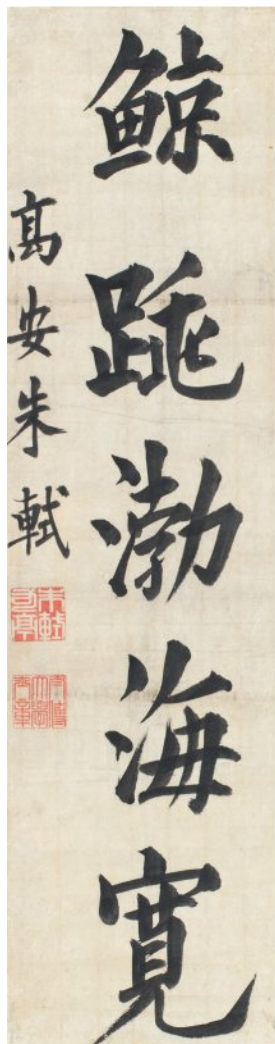 鯨跳渤海寬
高安朱軾
朱軾可亭